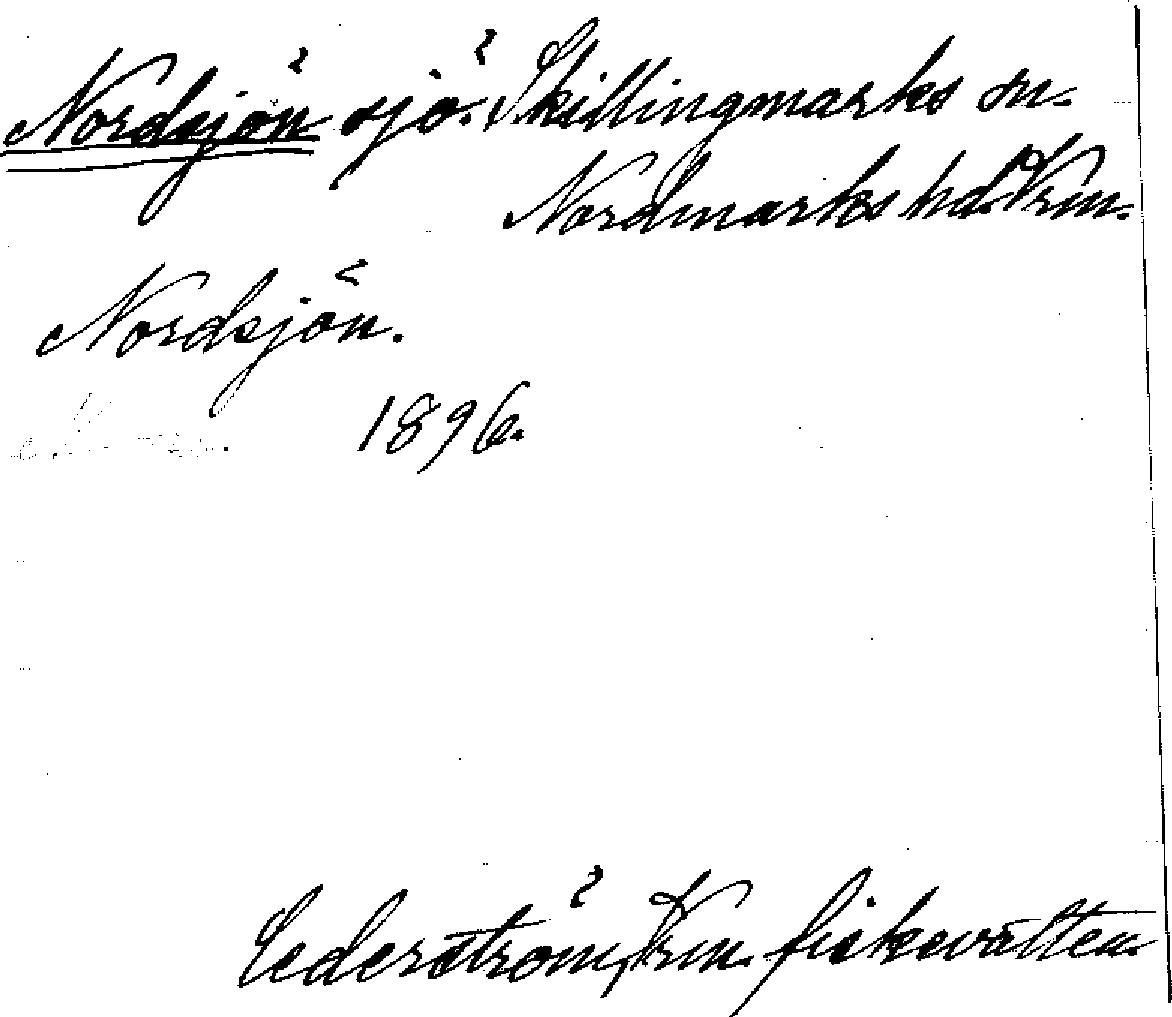 Nordsjön sjö. Skillingmarks sn.
Nordmarks hd. Vrm.
Nordsjön.
1896.
Cederström, Vrm. fiskevatten